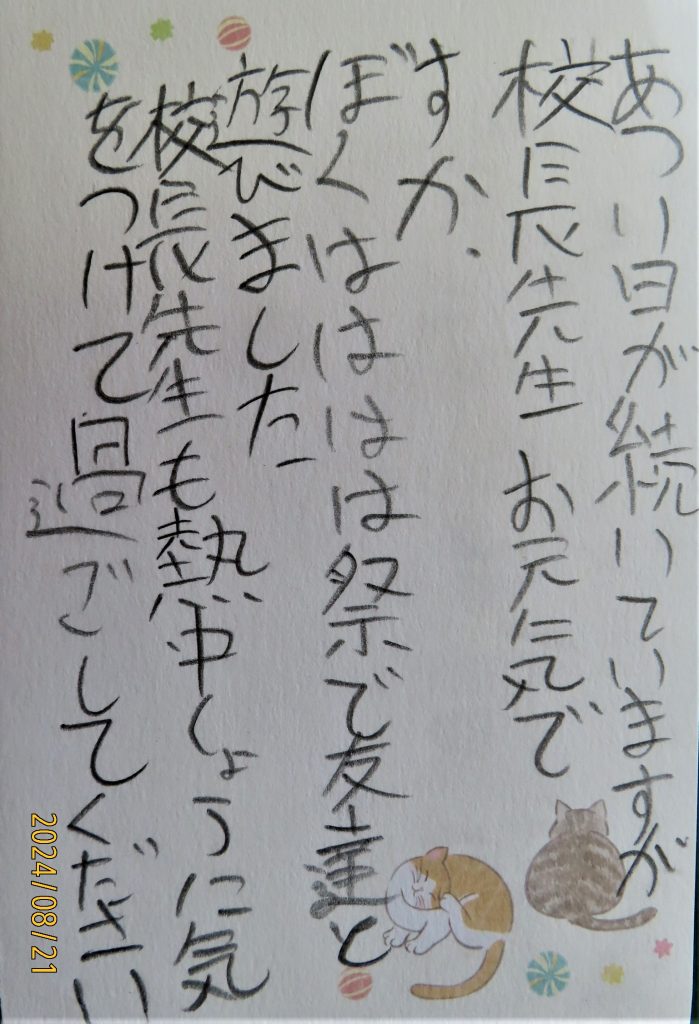 あつい日が続いていますが
校長先生 お元気で
すか、
ぼくはははは祭で友達と
遊びました
校長先生も熱中しょうに気
をつけて過ごしてください
2024/08/21